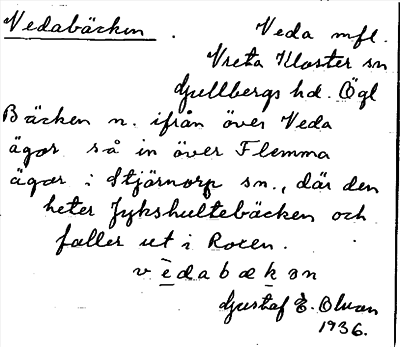 Vedabäcken. Veda mfl.
Vreta Kloster sn
Gullbergs hd. Ögl
Bäcken n. ifrån över Veda
ägor så in över Flemma
ägor i Stjärnorp sn., där den
heter Jykshultebäcken och
faller ut i Roxen.
vèdabækən
Gustaf E. Olsson
1936.